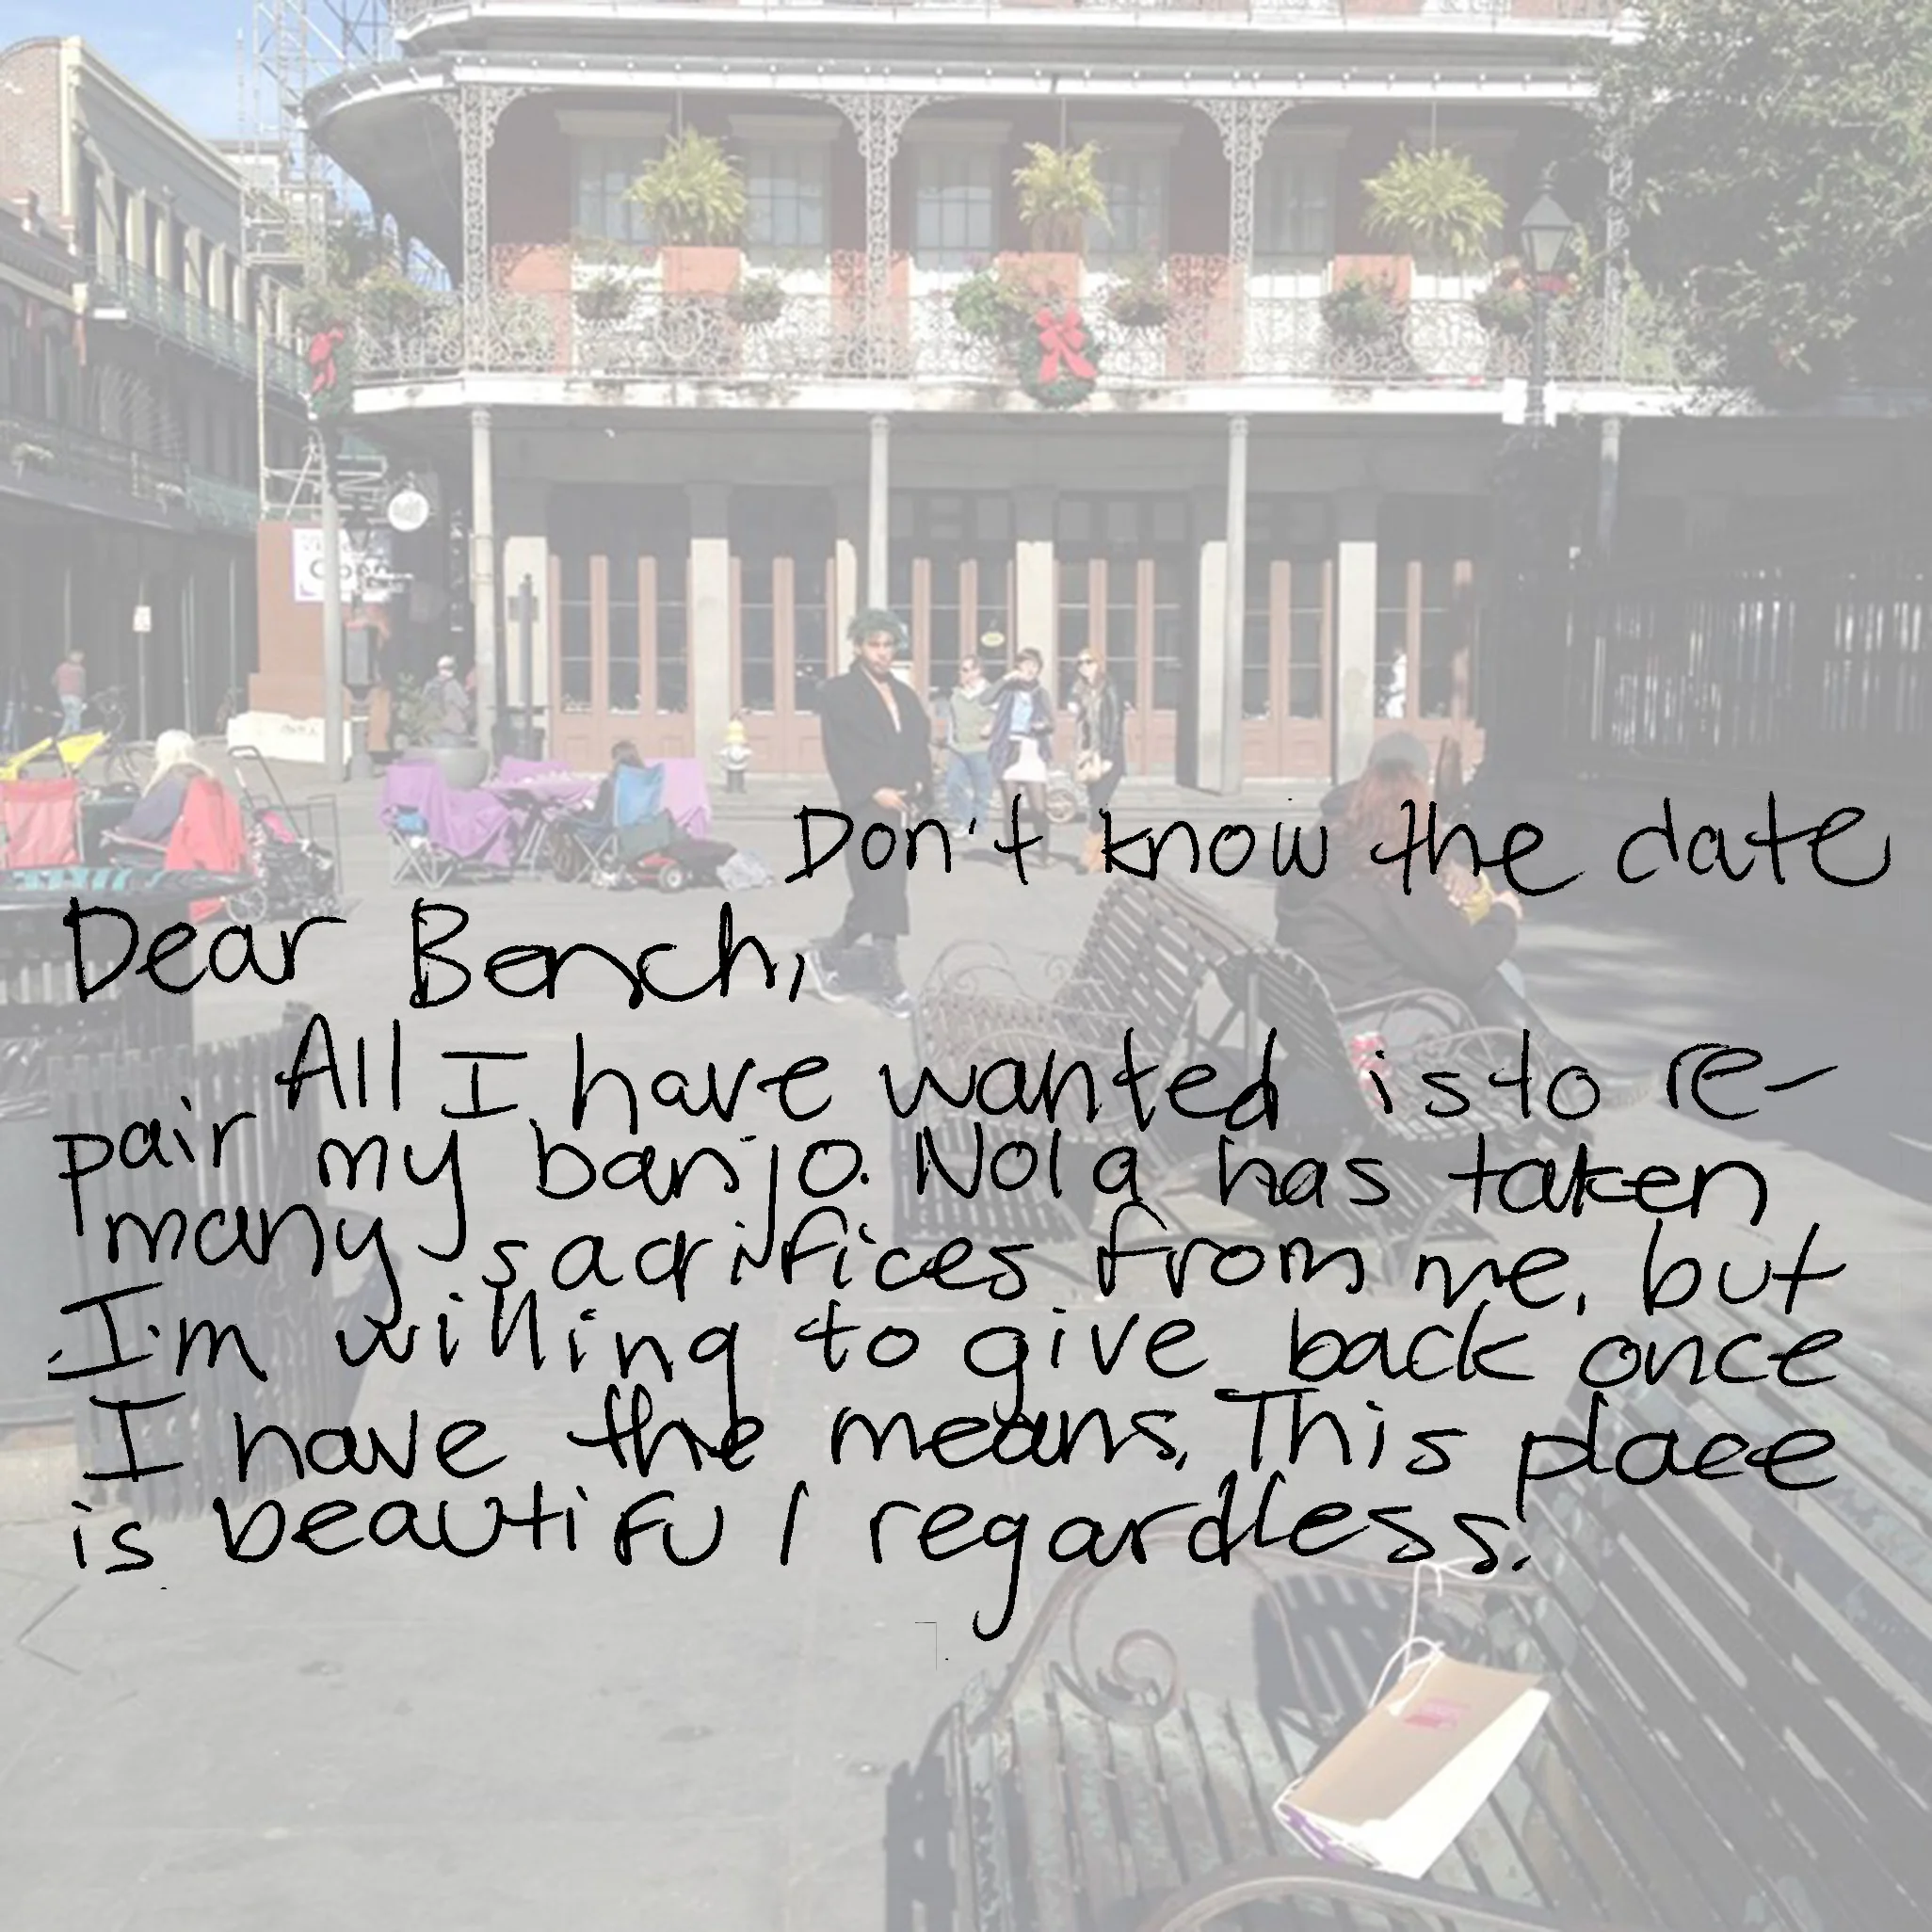 Don't know the date
Dear Bench,
All I have wanted is to re-
pair my banjo. Nola has taken
many sacrifices from me, but
I'm willing to give back once
I have the means. This place
is beautiful regardless!